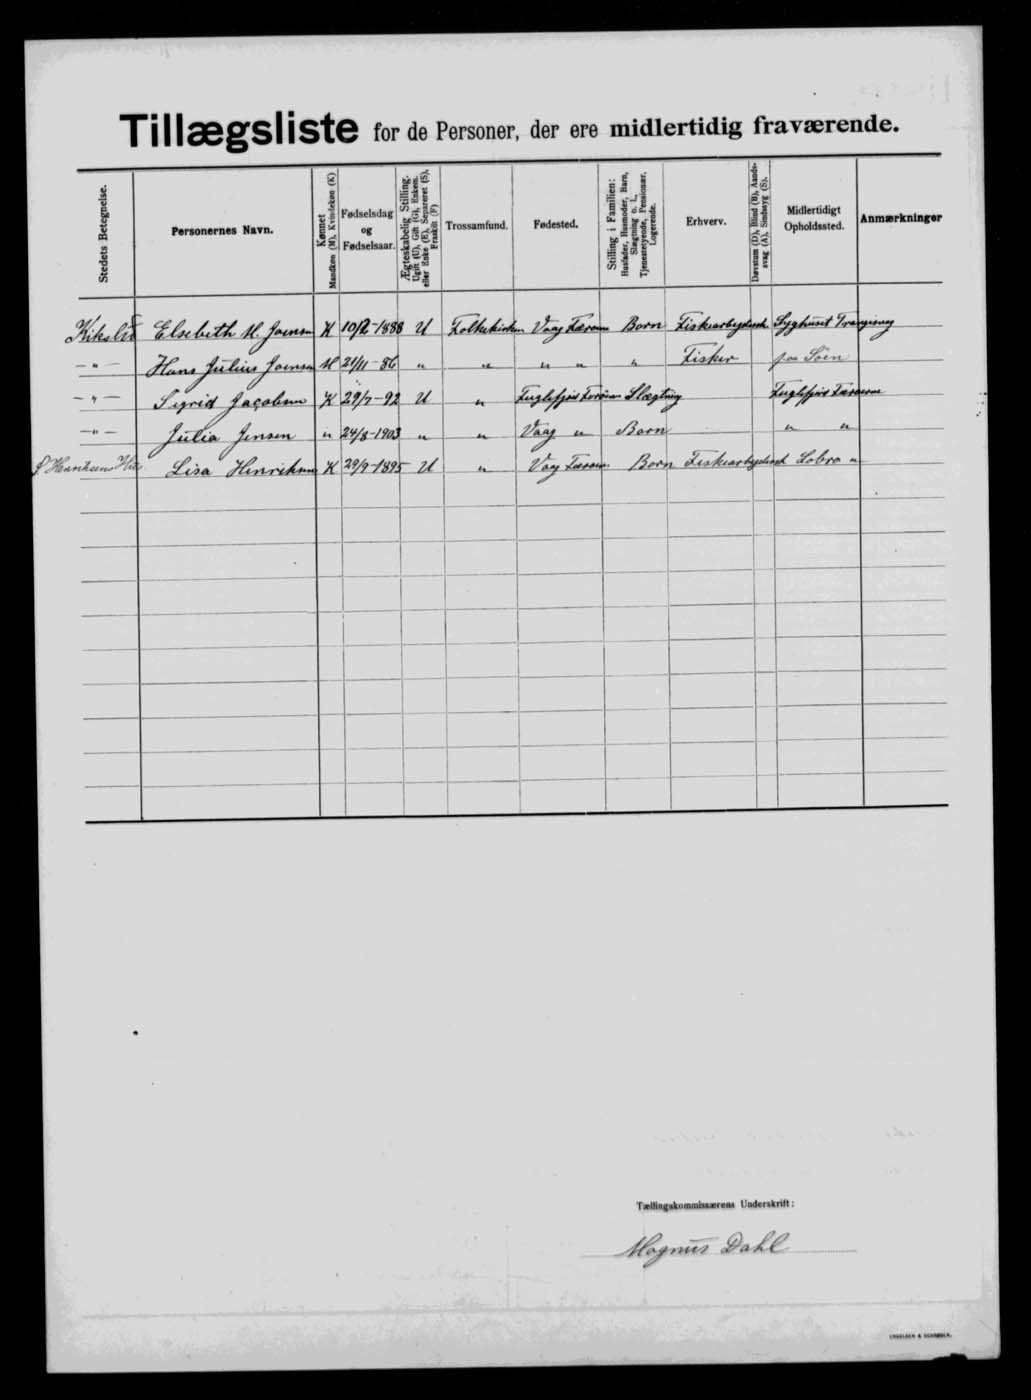 Tillægsliste for de Personer, der ere midlertidig fraværende.
Stedets Betegnelse.
Personernes Navn.
Kønnet
Mandkøn (M), Kvindekøn (K)
Fødselsdag
og
Fødselsaar.
Ægteskabelig Stilling.
Ugift (U), Gift (G), Enkem.
eller Enke (E), Separeret (S),
Fraskilt (F)
Trossamfund.
Fødested.
Stilling i Familien:
Husfader, Husmoder, Barn,
Slægtning o. l.,
Tjenestetyende, Pensionær,
Logerende.
Erhverv.
Døvstum (D), Blind (B), Aands-
svag (A), Sindssyg (S).
Midlertidigt
Opholdssted.
Anmærkninger
Elsebeth M. Joensen K 10/2-1888 U Folkekirken Vaag Færøerne Barn Fiskearbejdersk Syghuset Trangisvaag
-"- Hans Julius Joensen M 21/11-86 " " " " " Fisker paa Søen
-"- Sigrid Jacobsen K 29/7-92 U " Fuglefjord Færøerne Slægtning Fuglefjord Færøerne
-"- Julia Jensen " 24/8-1903 " " Vaag " Barn " "
Henriksens Hus Lisa Henriksen K 29/9-1895 U " Vaag Færøerne Barn Fiskearbejdersk Lobra "
Tællingskommissærens Underskrift:
Magnus Dahl